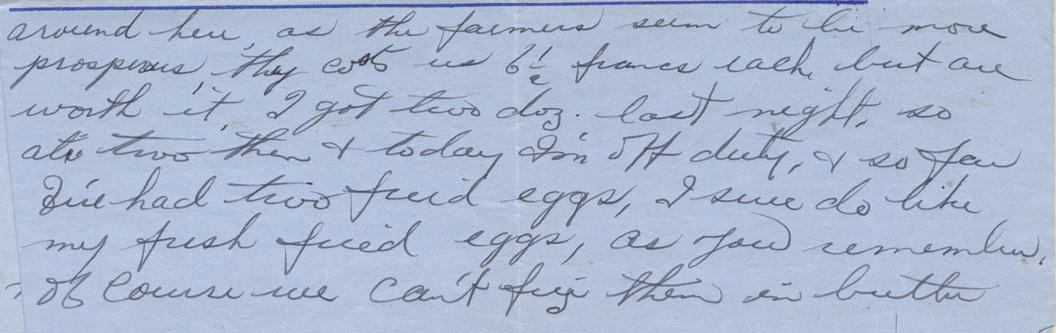 around here, as the farmers seem to be more
prosperous, they cost us 6½ francs each, but are
worth it, I got two doz. last night, so
ate two then & today I'm off duty, & so far
I've had two fried eggs, I sure do like
my fresh fried eggs, as you remember,
of course we can't fry them in butter